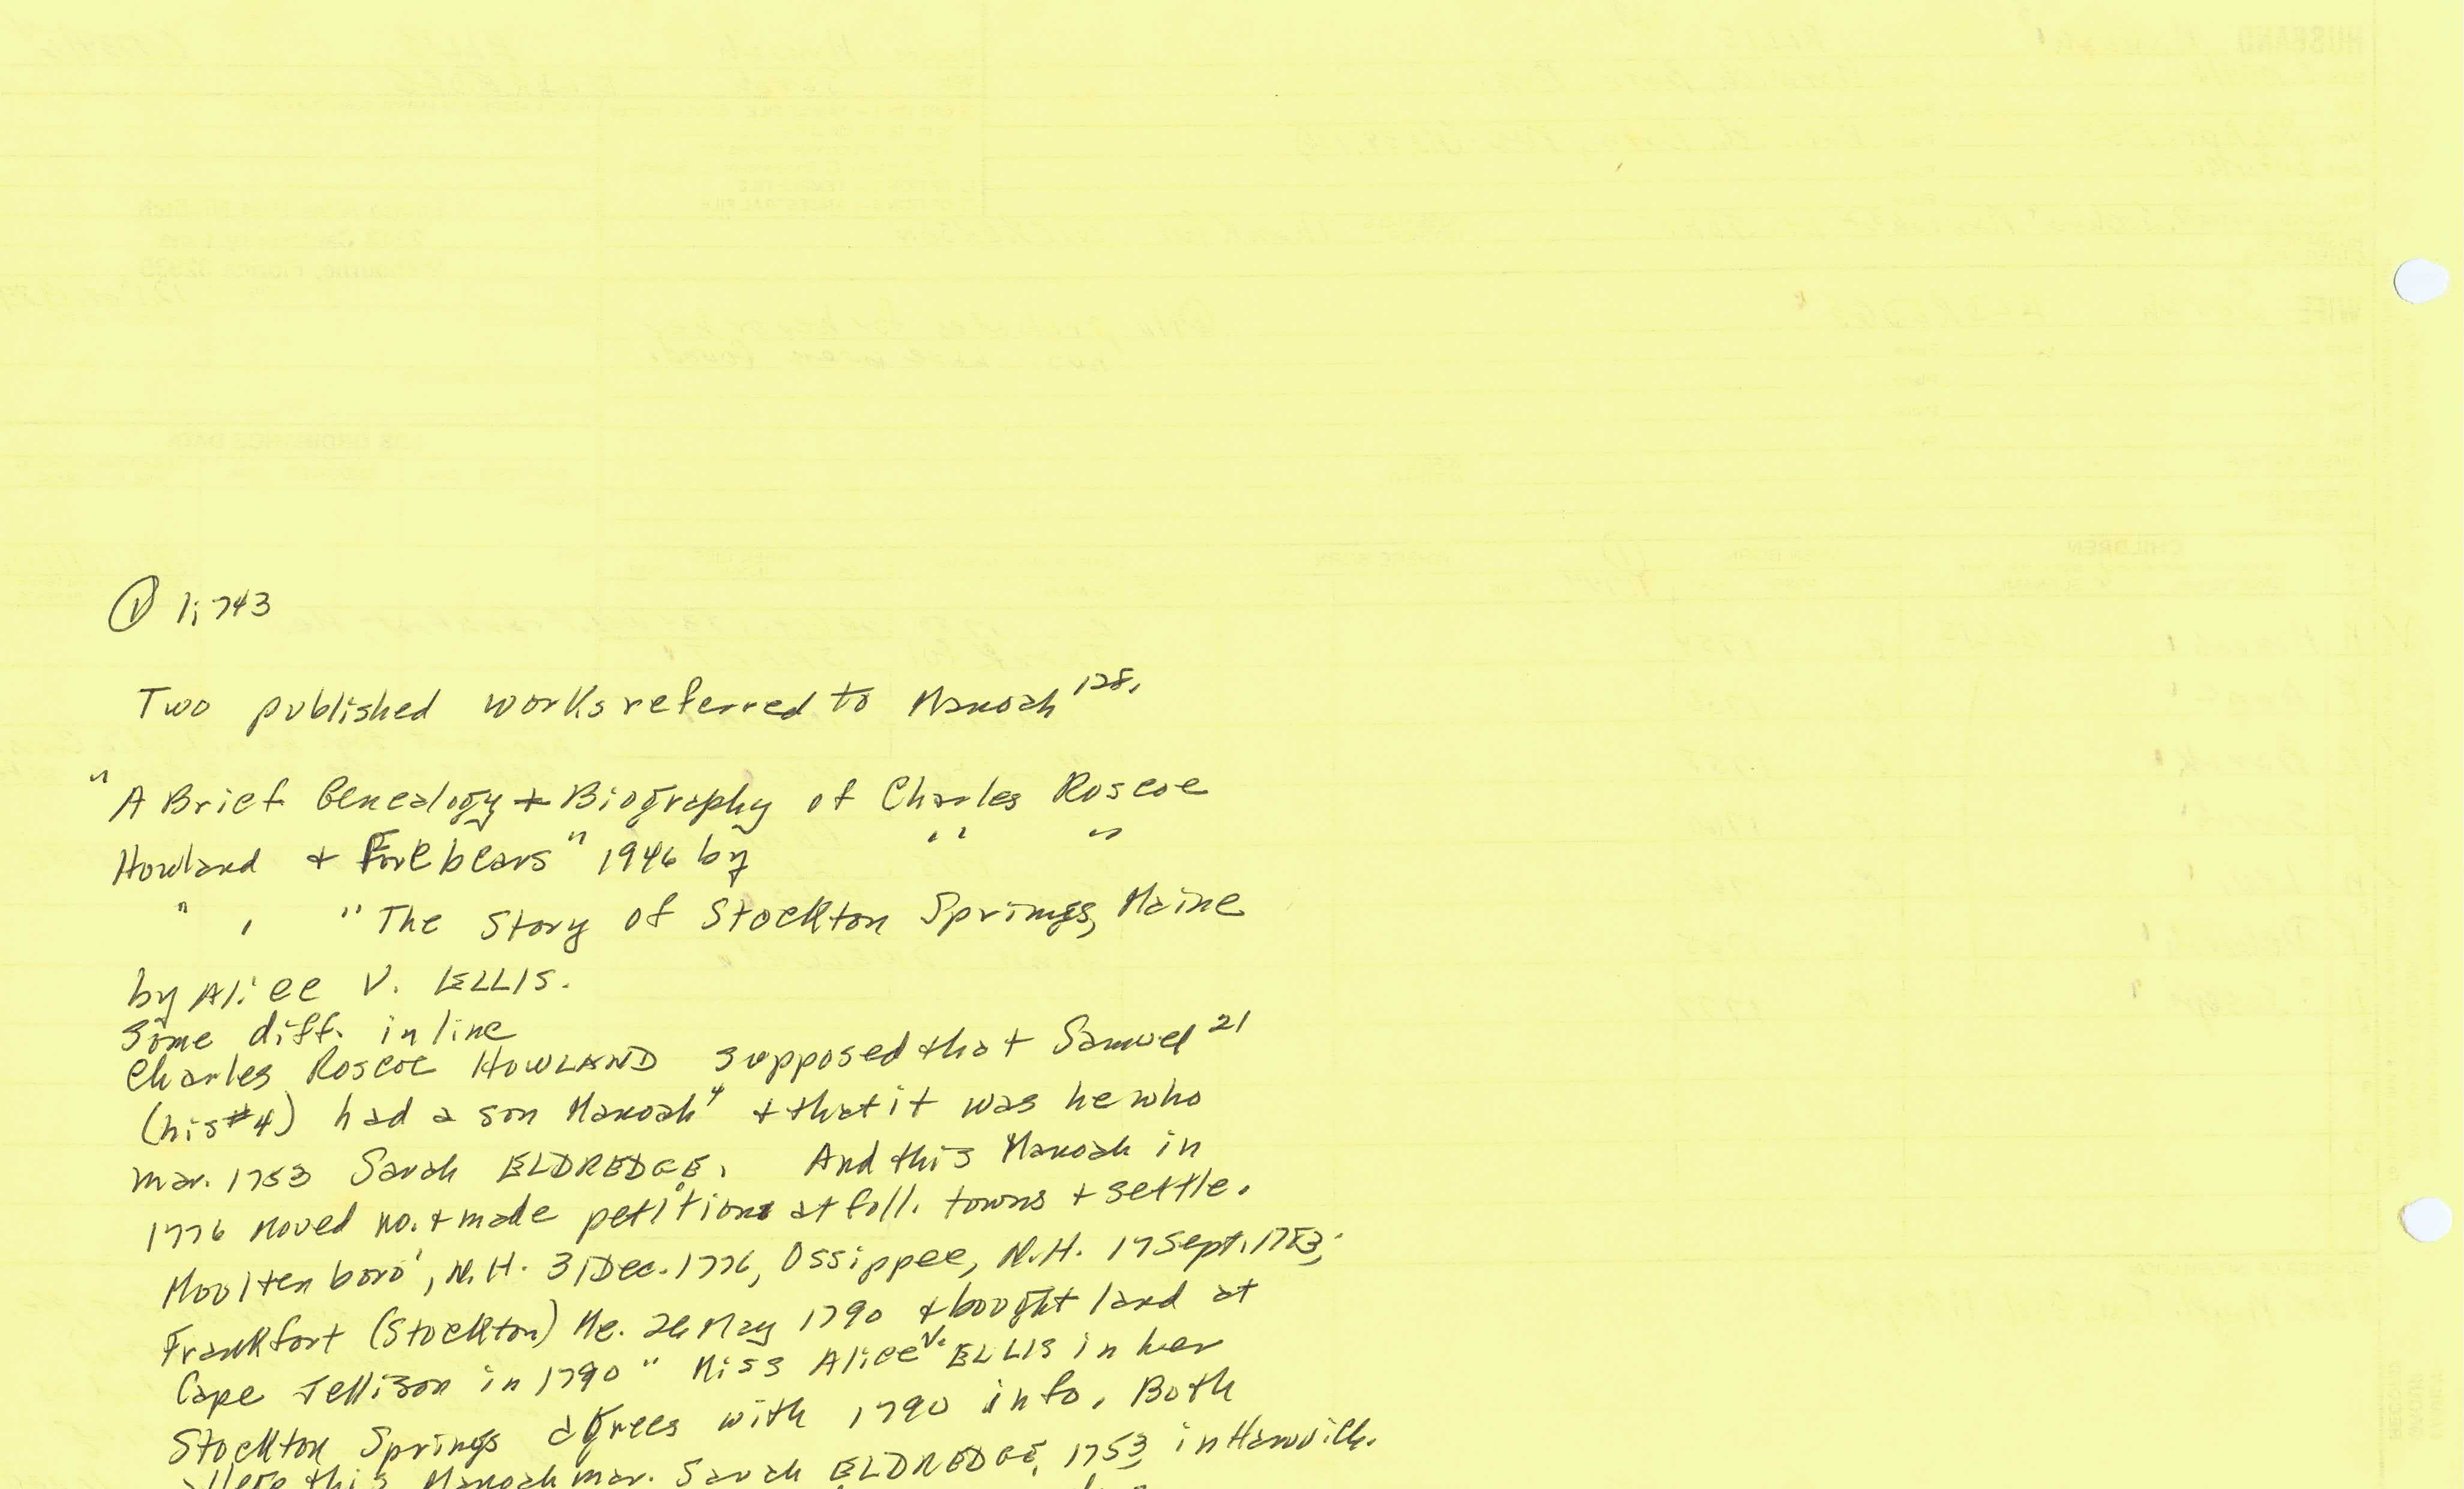 ① 1; 743
Two published works referred to Manoah 128.
"A Brief Genealogy + Biography of Charles Roscoe
Howland + Forebears" 1946 by " " "
" , "The Story of Stockton Springs, Maine
by Alice V. ELLIS.
Some diff. in line
Charles Roscoe HOWLAND supposed that Samuel 21
(his #4) had a son Manoah 4 + that it was he who
mar. 1753 Sarah ELDREDGE. And this Manoah in
1776 moved no. + made petitions at foll. towns + settle.
Moultenboro', N.H. 3 Dec. 1776, Ossippee, N.H. 17 Sept. 1783;
Frankfort (Stockton) Me. 26 May 1790 + bought land at
Cape Jellison in 1790" Miss Alice V. ELLIS in her
Stockton Springs agrees with 1790 info. Both
this Manoah mar. Sarah ELDREDGE, 1753 in Harwich.
HUSBAND
WIFE
CHILDREN